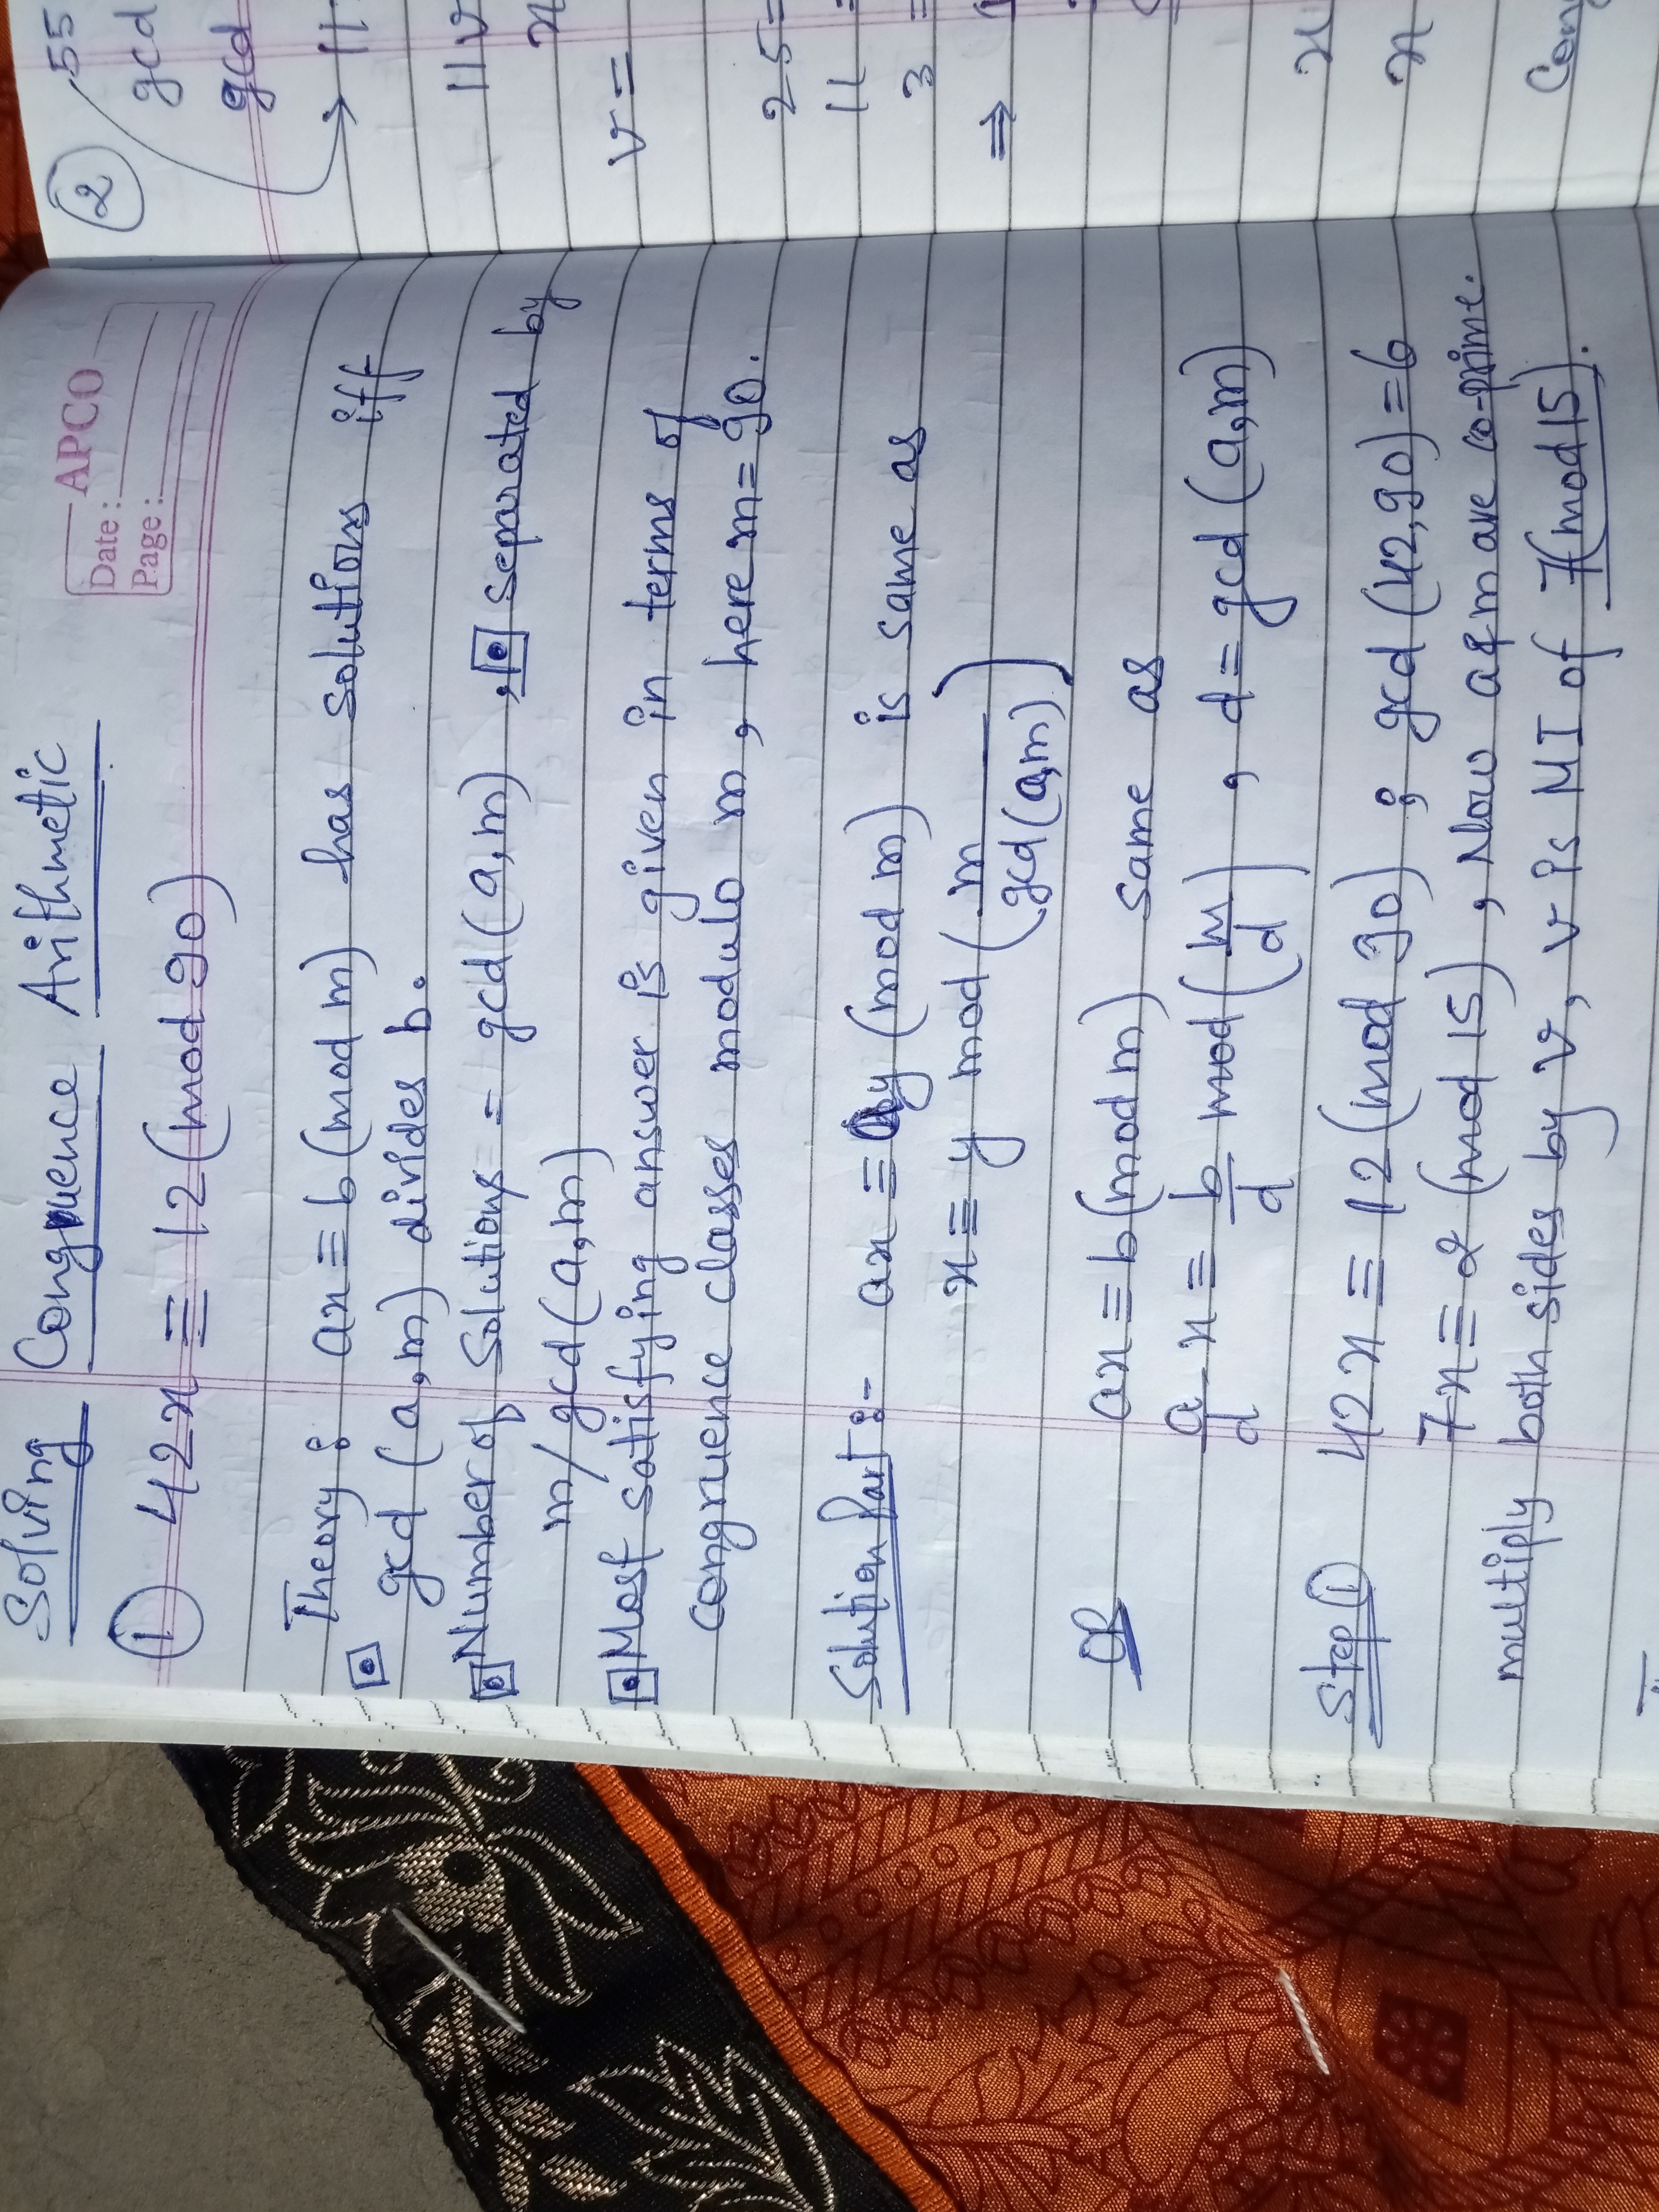 Solving Congruence Arithmetic
APCO
Date :
Page :
① 42x ≡ 12 (mod 90)
Theory : ax ≡ b (mod m) has solutions iff
gcd (a,m) divides b.
Number of Solutions = gcd (a,m) , separated by
m/gcd(a,m)
Most satisfying answer is given in terms of
congruence classes modulo m, here m= 90.
Solution Part :- ax ≡ ay (mod m) is same as
x ≡ y mod (m/gcd(a,m))
OR ax ≡ b (mod m) same as
a/d x ≡ b/d mod (m/d) , d = gcd (a,m)
Step ① 42x ≡ 12 (mod 90) ; gcd (42,90) = 6
7x ≡ 2 (mod 15) , Now a & m are co-prime.
multiply both sides by v, v is MI of 7(mod 15).
② 55
gcd
gcd
11
11v
x
v =
25=
11 =
3 =
⇒
x
x